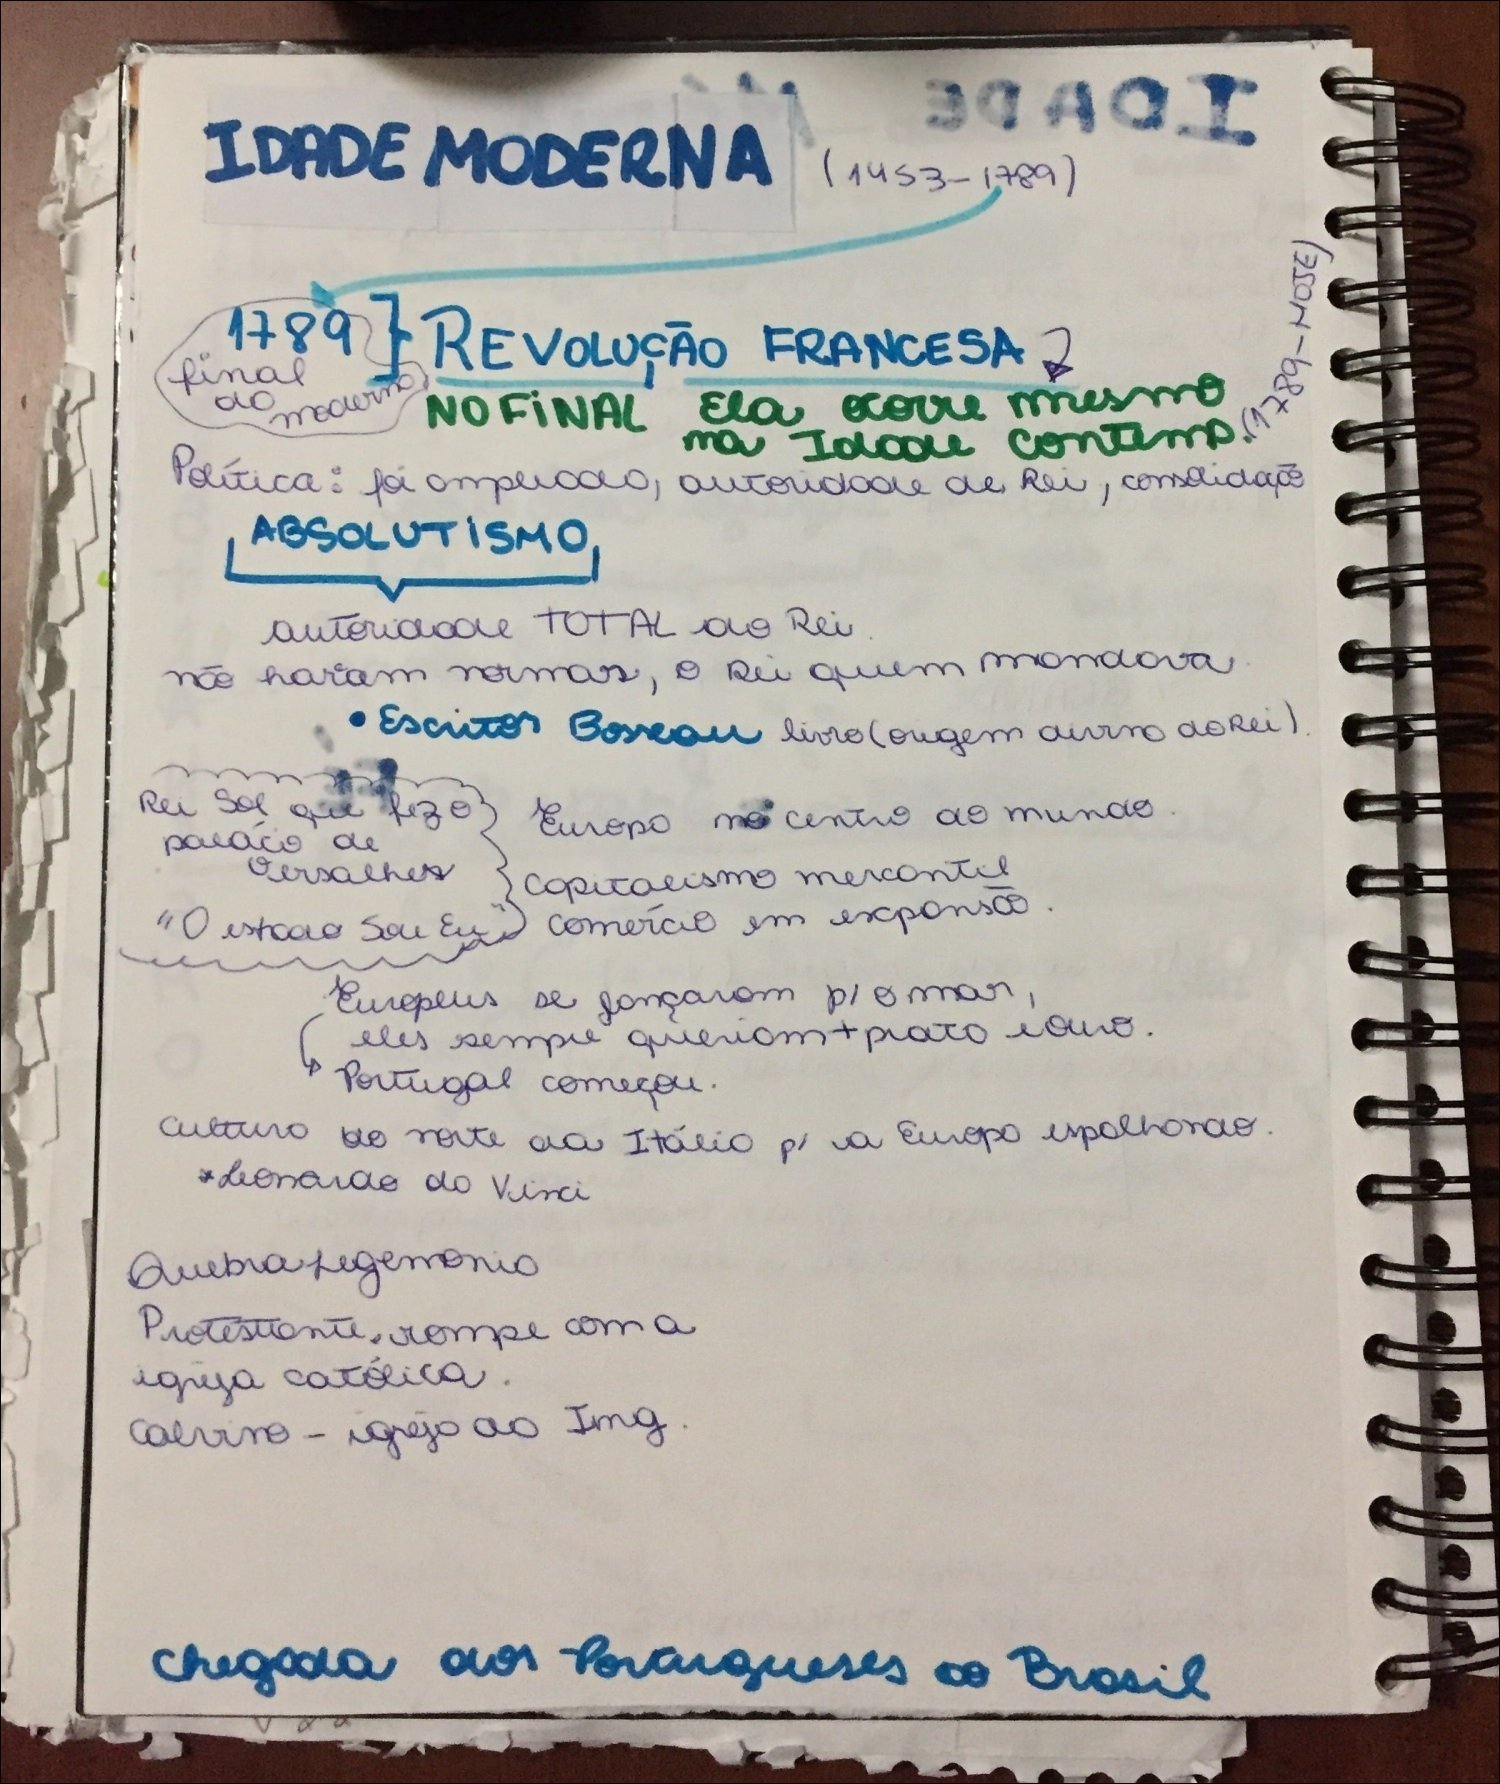 IDADE
IDADE MODERNA (1453-1789)
1789 } REVOLUÇÃO FRANCESA
final do moderno
NO FINAL Ela ocorre mesmo
na Idade contemp. (1789-HOJE)
Política: foi ampliado, autoridade de Rei, consolidação
ABSOLUTISMO
autoridade TOTAL do Rei.
não haviam normas, o Rei quem mandava.
• Escritor Bosseau livro (origem divina do Rei).
Rei Sol que fez o
palácio de
Versalhes
"O estado Sou Eu"
Europa no centro do mundo.
capitalismo mercantil
comércio em expansão.
Europeus se lançaram p/ o mar,
eles sempre queriam + prata e ouro.
Portugal começou.
cultura do norte da Itália p/ a Europa espalhando.
*Leonardo do Vinci
Quebra hegemonia
Protestante. rompe com a
igreja católica.
Calvino - igreja do Ing.
chegada dos Portugueses ao Brasil